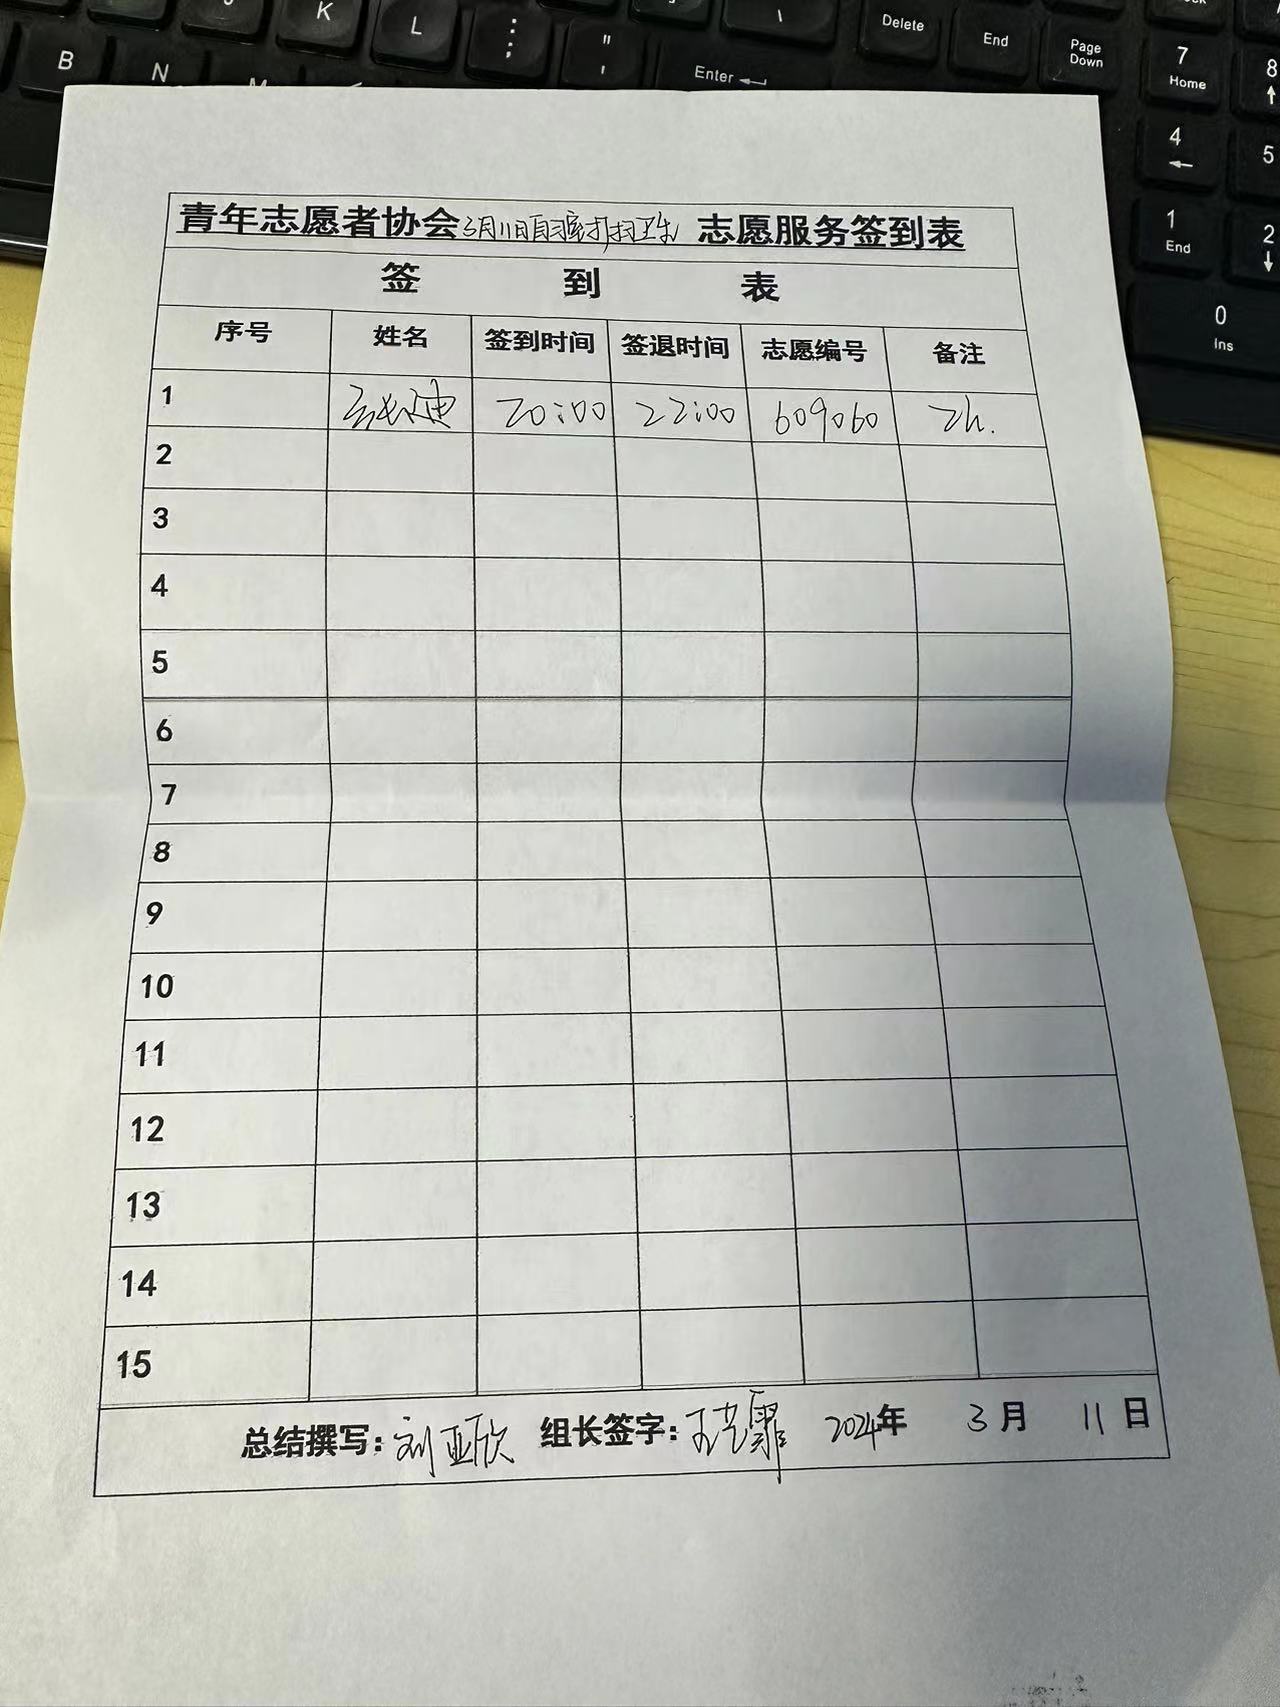 K
L
: ;
" '
\
Delete
End
Page Down
7 Home
8
B
N
M
Enter
4
5
1 End
2
0 Ins
青年志愿者协会3月11日自习室打扫卫生 志愿服务签到表
签 到 表
序号 姓名 签到时间 签退时间 志愿编号 备注
1 迪 20:00 22:00 609060 2h.
2
3
4
5
6
7
8
9
10
11
12
13
14
15
总结撰写:刘亚欣 组长签字:王艺霏 2024年 3月 11日